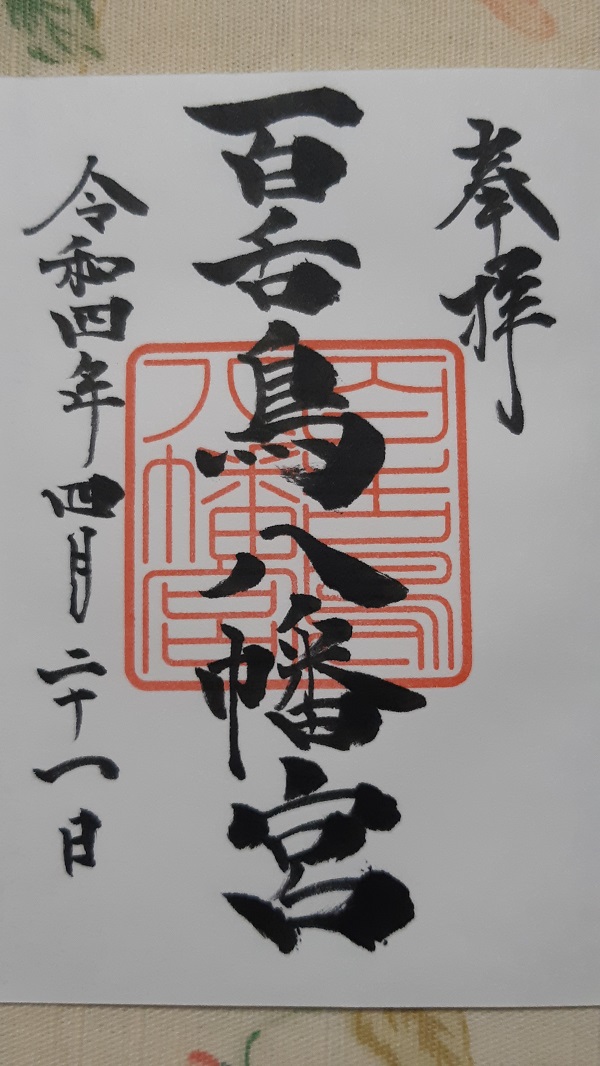 奉拝
百舌鳥八幡宮
百舌鳥
八幡宮
令和四年四月二十一日